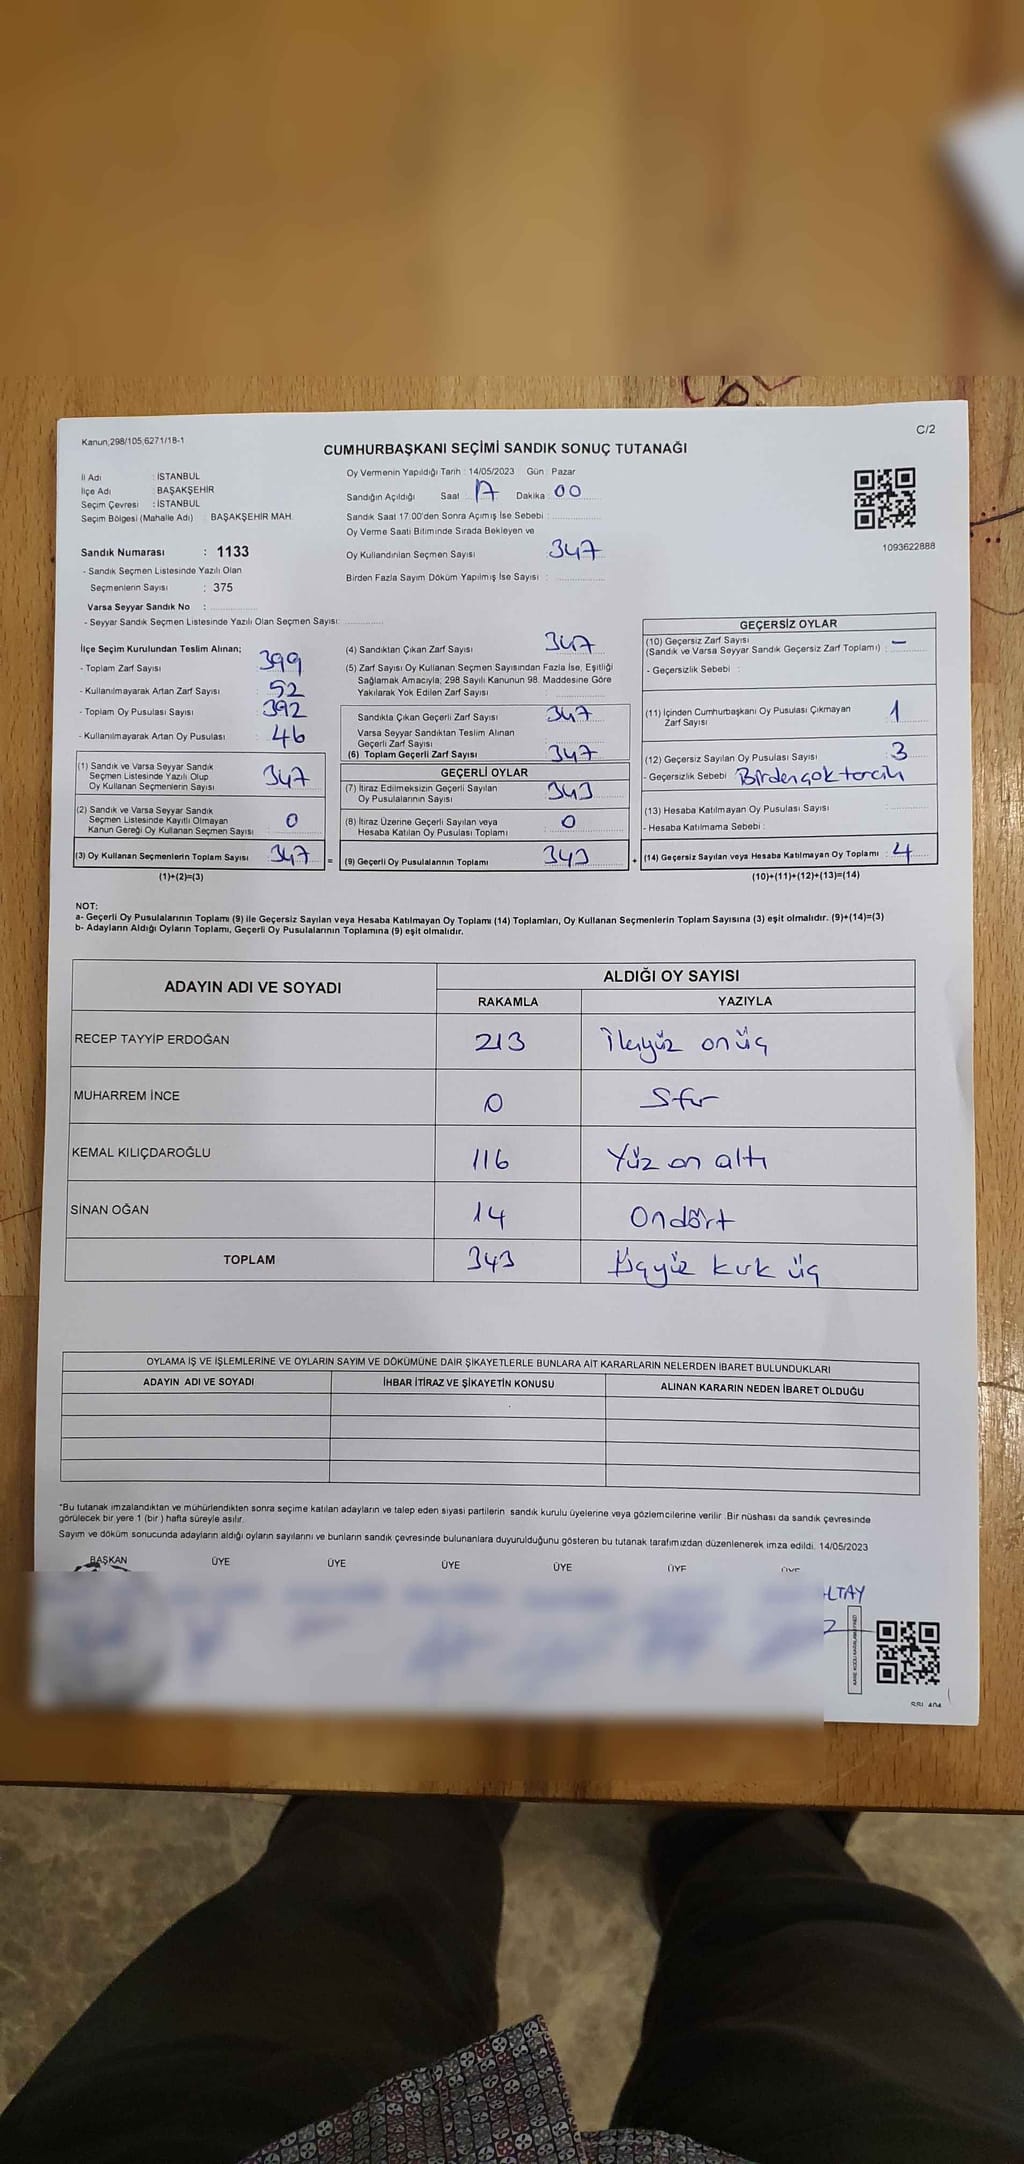 C/2
Kanun,298/105,6271/18-1
CUMHURBAŞKANI SEÇİMİ SANDIK SONUÇ TUTANAĞI
İl Adı : İSTANBUL
İlçe Adı : BAŞAKŞEHİR
Seçim Çevresi : İSTANBUL
Seçim Bölgesi (Mahalle Adı) : BAŞAKŞEHİR MAH.
Sandık Numarası : 1133
- Sandık Seçmen Listesinde Yazılı Olan
Seçmenlerin Sayısı : 375
Varsa Seyyar Sandık No :
- Seyyar Sandık Seçmen Listesinde Yazılı Olan Seçmen Sayısı:
Oy Vermenin Yapıldığı Tarih : 14/05/2023 Gün : Pazar
Sandığın Açıldığı Saat : 17 Dakika : 00
Sandık Saat 17:00'den Sonra Açımış İse Sebebi :
Oy Verme Saati Bitiminde Sırada Bekleyen ve
Oy Kullandırılan Seçmen Sayısı 347
Birden Fazla Sayım Döküm Yapılmış İse Sayısı :
1093622888
İlçe Seçim Kurulundan Teslim Alınan;
- Toplam Zarf Sayısı 399
- Kullanılmayarak Artan Zarf Sayısı : 52
- Toplam Oy Pusulası Sayısı : 392
- Kullanılmayarak Artan Oy Pusulası : 46
(1) Sandık ve Varsa Seyyar Sandık
Seçmen Listesinde Yazılı Olup
Oy Kullanan Seçmenlerin Sayısı : 347
(2) Sandık ve Varsa Seyyar Sandık
Seçmen Listesinde Kayıtlı Olmayan
Kanun Gereği Oy Kullanan Seçmen Sayısı : 0
(3) Oy Kullanan Seçmenlerin Toplam Sayısı : 347
(1)+(2)=(3)
=
(4) Sandıktan Çıkan Zarf Sayısı 347
(5) Zarf Sayısı Oy Kullanan Seçmen Sayısından Fazla İse, Eşitliği
Sağlamak Amacıyla; 298 Sayılı Kanunun 98. Maddesine Göre
Yakılarak Yok Edilen Zarf Sayısı
Sandıkta Çıkan Geçerli Zarf Sayısı 347
Varsa Seyyar Sandıktan Teslim Alınan
Geçerli Zarf Sayısı
(6) Toplam Geçerli Zarf Sayısı 347
GEÇERLİ OYLAR
(7) İtiraz Edilmeksizin Geçerli Sayılan
Oy Pusulalarının Sayısı 343
(8) İtiraz Üzerine Geçerli Sayılan veya
Hesaba Katılan Oy Pusulası Toplamı 0
(9) Geçerli Oy Pusulalarının Toplamı 343
+
GEÇERSİZ OYLAR
(10) Geçersiz Zarf Sayısı
(Sandık ve Varsa Seyyar Sandık Geçersiz Zarf Toplamı) : -
- Geçersizlik Sebebi :
(11) İçinden Cumhurbaşkanı Oy Pusulası Çıkmayan
Zarf Sayısı 1
(12) Geçersiz Sayılan Oy Pusulası Sayısı : 3
- Geçersizlik Sebebi : Birden çok tercih
(13) Hesaba Katılmayan Oy Pusulası Sayısı :
- Hesaba Katılmama Sebebi :
(14) Geçersiz Sayılan veya Hesaba Katılmayan Oy Toplamı : 4
(10)+(11)+(12)+(13)=(14)
NOT:
a- Geçerli Oy Pusulalarının Toplamı (9) ile Geçersiz Sayılan veya Hesaba Katılmayan Oy Toplamı (14) Toplamları, Oy Kullanan Seçmenlerin Toplam Sayısına (3) eşit olmalıdır. (9)+(14)=(3)
b- Adayların Aldığı Oyların Toplamı, Geçerli Oy Pusulalarının Toplamına (9) eşit olmalıdır.
ADAYIN ADI VE SOYADI ALDIĞI OY SAYISI
RAKAMLA YAZIYLA
RECEP TAYYİP ERDOĞAN 213 İkiyüz onüç
MUHARREM İNCE 0 Sıfır
KEMAL KILIÇDAROĞLU 116 Yüz on altı
SİNAN OĞAN 14 Ondört
TOPLAM 343 Üçyüz kırk üç
OYLAMA İŞ VE İŞLEMLERİNE VE OYLARIN SAYIM VE DÖKÜMÜNE DAİR ŞİKAYETLERLE BUNLARA AİT KARARLARIN NELERDEN İBARET BULUNDUKLARI
ADAYIN ADI VE SOYADI İHBAR İTİRAZ VE ŞİKAYETİN KONUSU ALINAN KARARIN NEDEN İBARET OLDUĞU
*Bu tutanak imzalandıktan ve mühürlendikten sonra seçime katılan adayların ve talep eden siyasi partilerin sandık kurulu üyelerine veya gözlemcilerine verilir .Bir nüshası da sandık çevresinde
görülecek bir yere 1 (bir ) hafta süreyle asılır.
Sayım ve döküm sonucunda adayların aldığı oyların sayılarını ve bunların sandık çevresinde bulunanlara duyurulduğunu gösteren bu tutanak tarafımızdan düzenlenerek imza edildi. 14/05/2023
BAŞKAN ÜYE ÜYE ÜYE ÜYE ÜYE ÜYE
LTAY